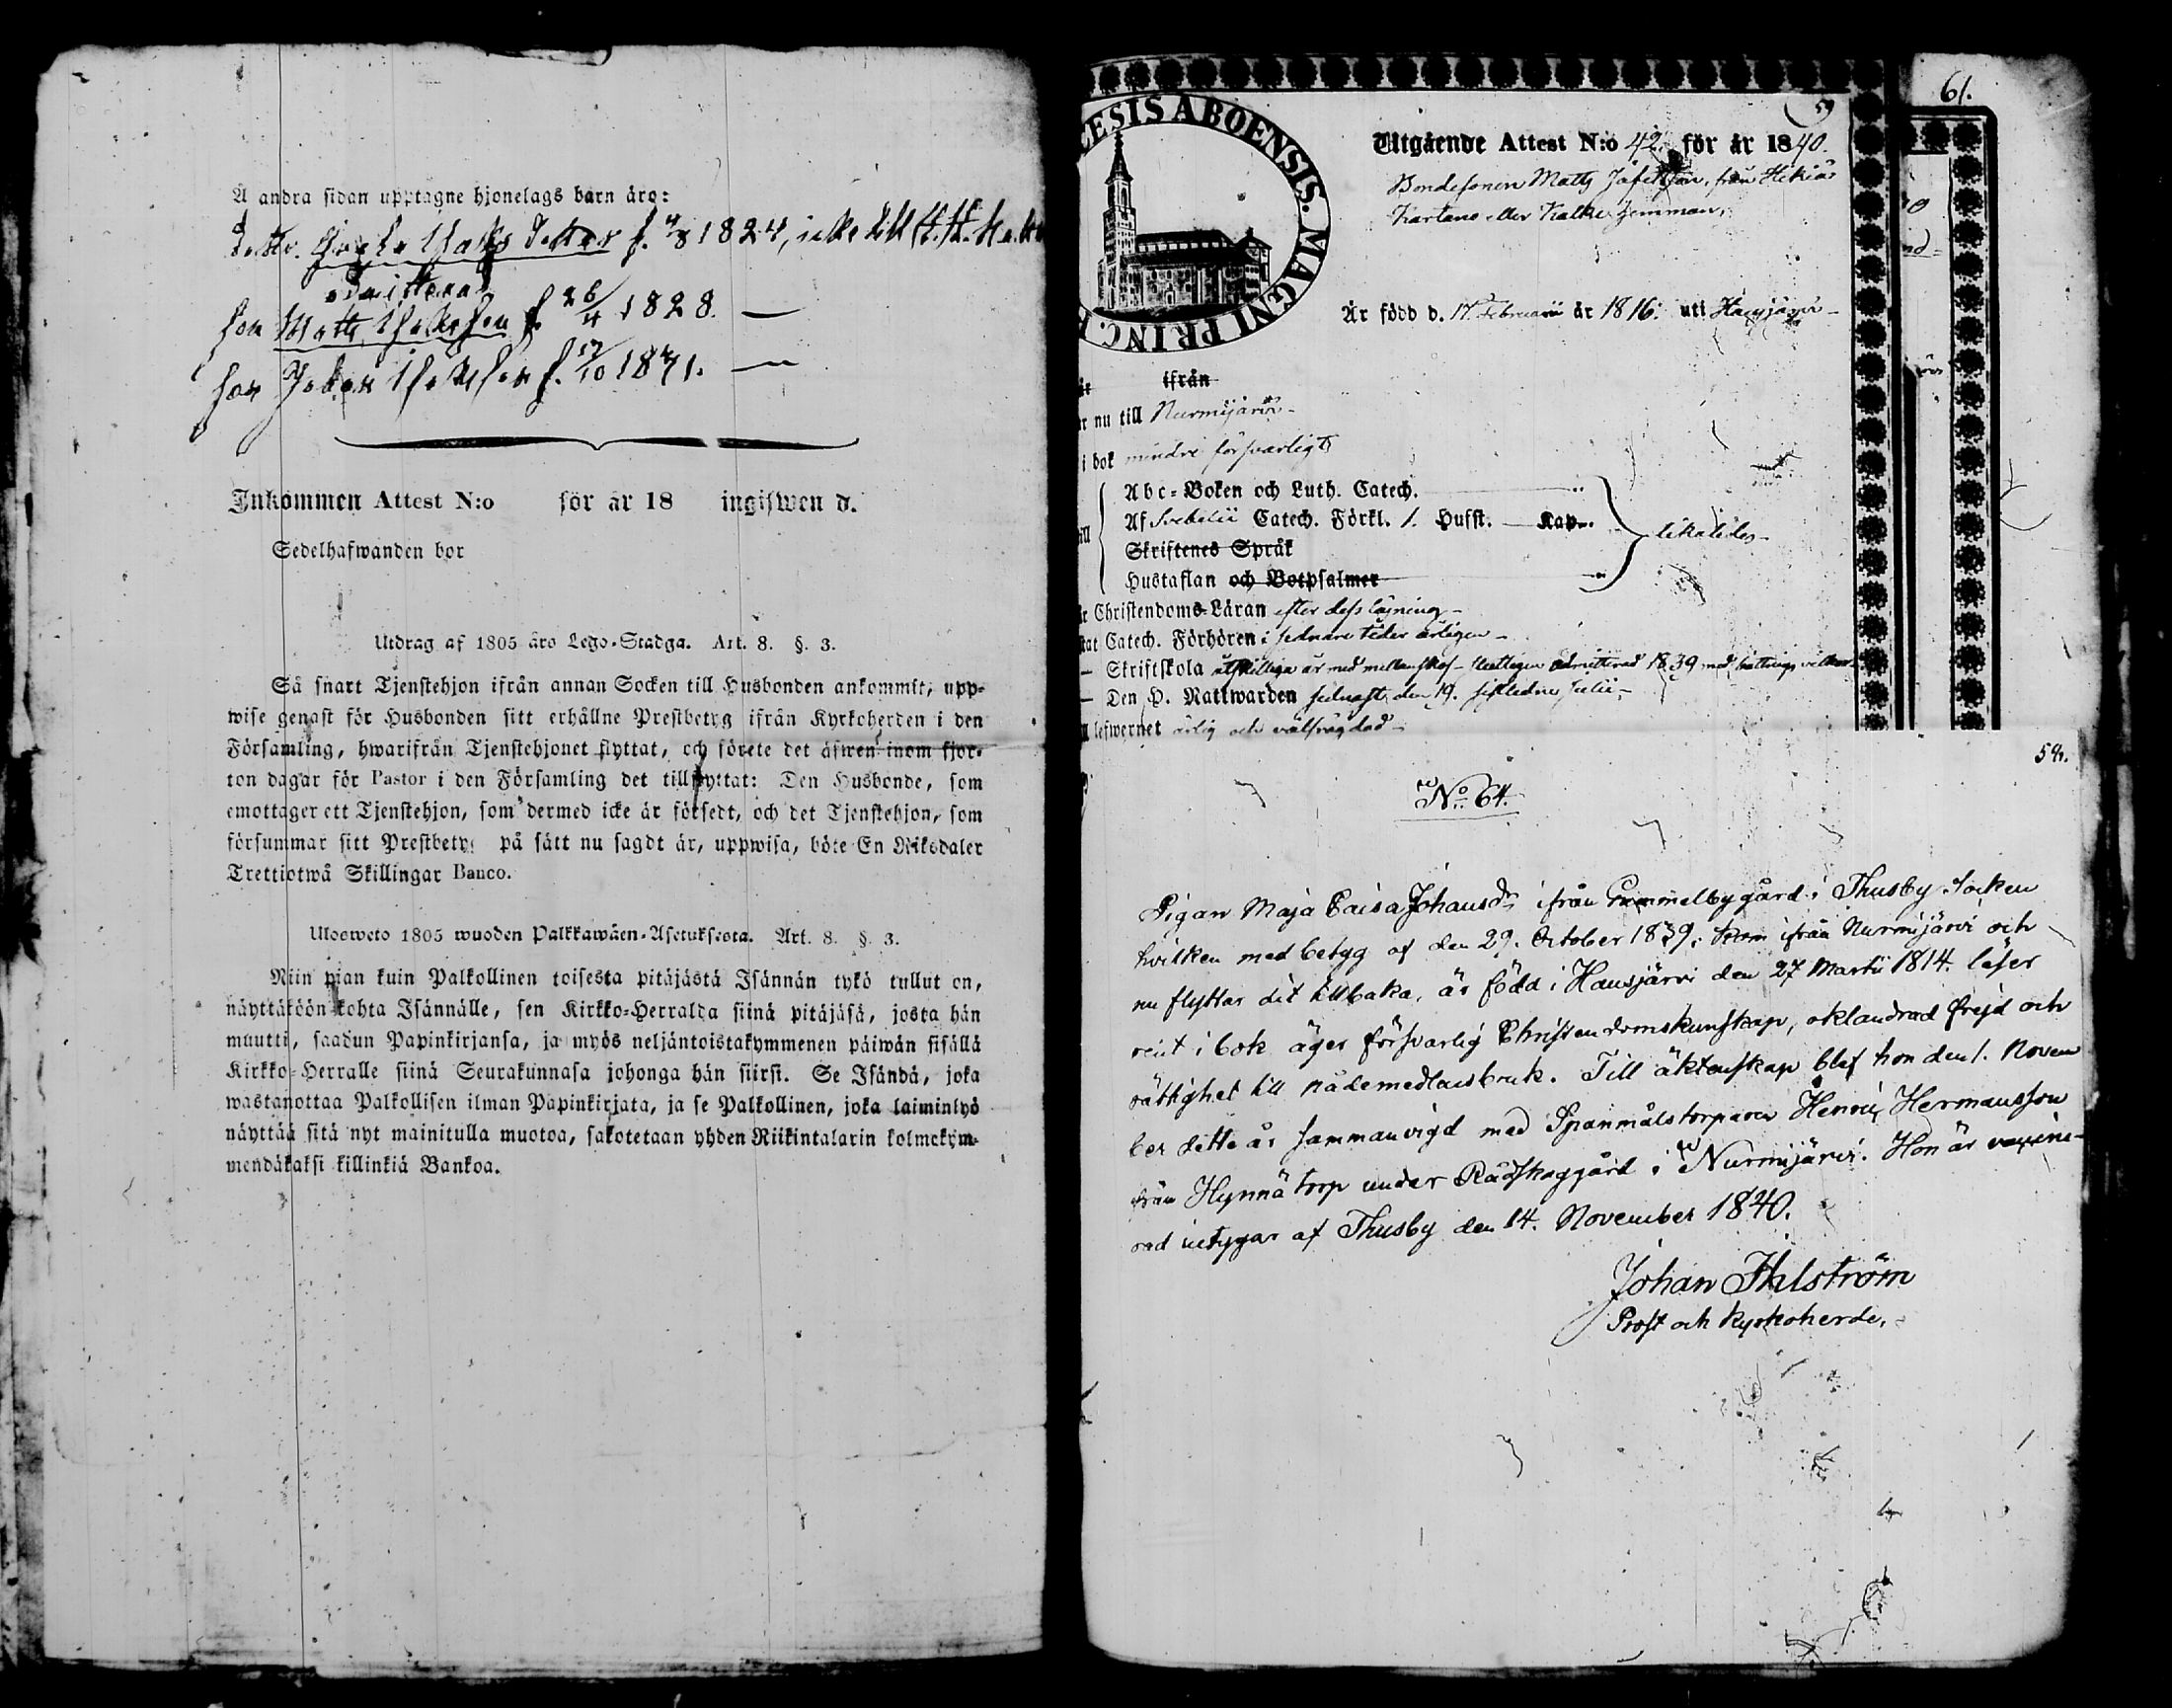 Å andra sidan upptagne hjonelags barn äro:
f. 4/8 1824, icke till
admitterad
son Matts Isaksson f. 26/4 1828. —
son Johan Isaksson f. 17/10 1831. —
Inkommen Attest N:o för år 18 ingifwen d.
Sedelhafwanden bor
Utdrag af 1805 års Lego-Stadga. Art. 8. §. 3.
Så snart Tjenstehjon ifrån annan Socken till Husbonden ankommit, upp-
wise genast för Husbonden sitt erhållne Prestbetyg ifrån Kyrkoherden i den
Församling, hwarifrån Tjenstehjonet flyttat, och förete det äfwen inom fjor-
ton dagar för Pastor i den Församling det tillflyttat: Den Husbonde, som
emottager ett Tjenstehjon, som dermed icke är försedt, och det Tjenstehjon, som
försummar sitt Prestbetyg på sätt nu sagdt är, uppwisa, böte En Riksdaler
Trettiotwå Skillingar Banco.
Ulosweto 1805 wuoden Palkkawäen-Asetuksesta. Art. 8. §. 3.
Niin pian kuin Palkollinen toisesta pitäjästä Isännän tykö tullut on,
näyttäköön kohta Isännälle, sen Kirkko-Herralda siinä pitäjäsä, josta hän
muutti, saadun Papinkirjansa, ja myös neljäntoistakymmenen päiwän sisällä
Kirkko-Herralle siinä Seurakunnasa johonga hän siirsi. Se Isändä, joka
wastanottaa Palkollisen ilman Papinkirjata, ja se Palkollinen, joka laiminlyö
näyttää sitä nyt mainitulla muotoa, sakotetaan yhden Riikintalarin kolmekym-
mendäkaksi killinkiä Bankoa.
61.
59
ESIS ABOENSIS. MAGNI PRINC.
Utgående Attest N:o 42. för år 1840.
Bondesonen Matts Jafetsson, från Hikiäs
Kartano eller Kalkes hemman,
Är född d. 17 Februarii år 1816. uti Hausjärvi
ifrån
nu till Nurmijärvi
i bok mindre försvarligt
Abc-Boken och Luth. Catech.
Af Svebelii Catech. Förkl. 1. Hufst. Kap. likaledes
Skriftenes Språk
Hustaflan och Botpsalmer
Christendoms-Läran efter dess läsning
Catech. Förhören i sednare tider årligen
Skriftskola åtskilliga år med mellanskof slutligen admitterad 1839 med bättrings vilkor
Den H. Nattwarden sednast den 19. sistledne Julii
lefwernet ärlig och välfrägdad
54.
No 64.
Pigan Maja Caisa Johansdr ifrån Gammelby gård i Thusby Socken
hvilken med betyg af den 29. October 1839. kom ifrån Nurmijärvi och
nu flyttar dit tillbaka, är född i Hausjärvi den 27 Martii 1814. läser
rent i bok äger försvarlig Christendomskunskap, oklandrad frejd och
rättighet till nådemedlens bruk. Till äktenskap blef hon den 1. Novem
ber detta år sammanvigd med Spanmålstorparen Henric Hermansson
från Hynnä torp under Rådskog gård i Nurmijärvi. Hon är vaccine-
rad intygar af Thusby den 14. November 1840.
Johan Ihlström
Prost och Kyrkoherde.